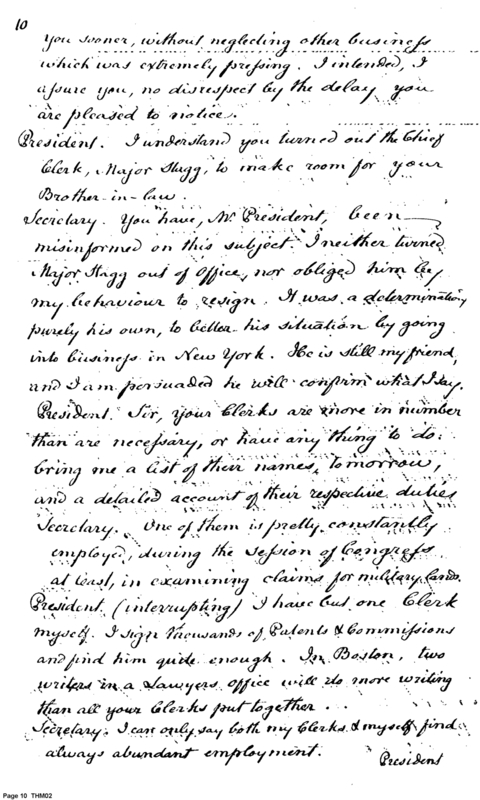 10
you sooner, without neglecting other business
which was extremely pressing. I intended, I
assure you, no disrespect by the delay you
are pleased to notice.
President. I understand you turned out the Chief
Clerk, Major Stagg, to make room for your
Brother-in-law.
Secretary. You have, Mr President, been
misinformed on this subject. I neither turned
Major Stagg out of Office, nor obliged him by
my behaviour to resign. It was a determination
purely his own, to better his situation by going
into business in New York. He is still my friend,
and I am persuaded he will confirm what I say.
President. Sir, your Clerks are more in number
than are necessary, or have any thing to do:
bring me a list of their names, tomorrow,
and a detailed account of their respective duties
Secretary. One of them is pretty constantly
employed, during the Session of Congress
at least, in examining claims for military lands.
President (interrupting) I have but one Clerk
myself. I sign thousands of Patents & Commissions
and find him quite enough. In Boston, two
writers in a Lawyers Office will do more writing
than all your Clerks put together.
Secretary. I can only say both my Clerks & myself find
always abundant employment.
President
Page 10 THM02